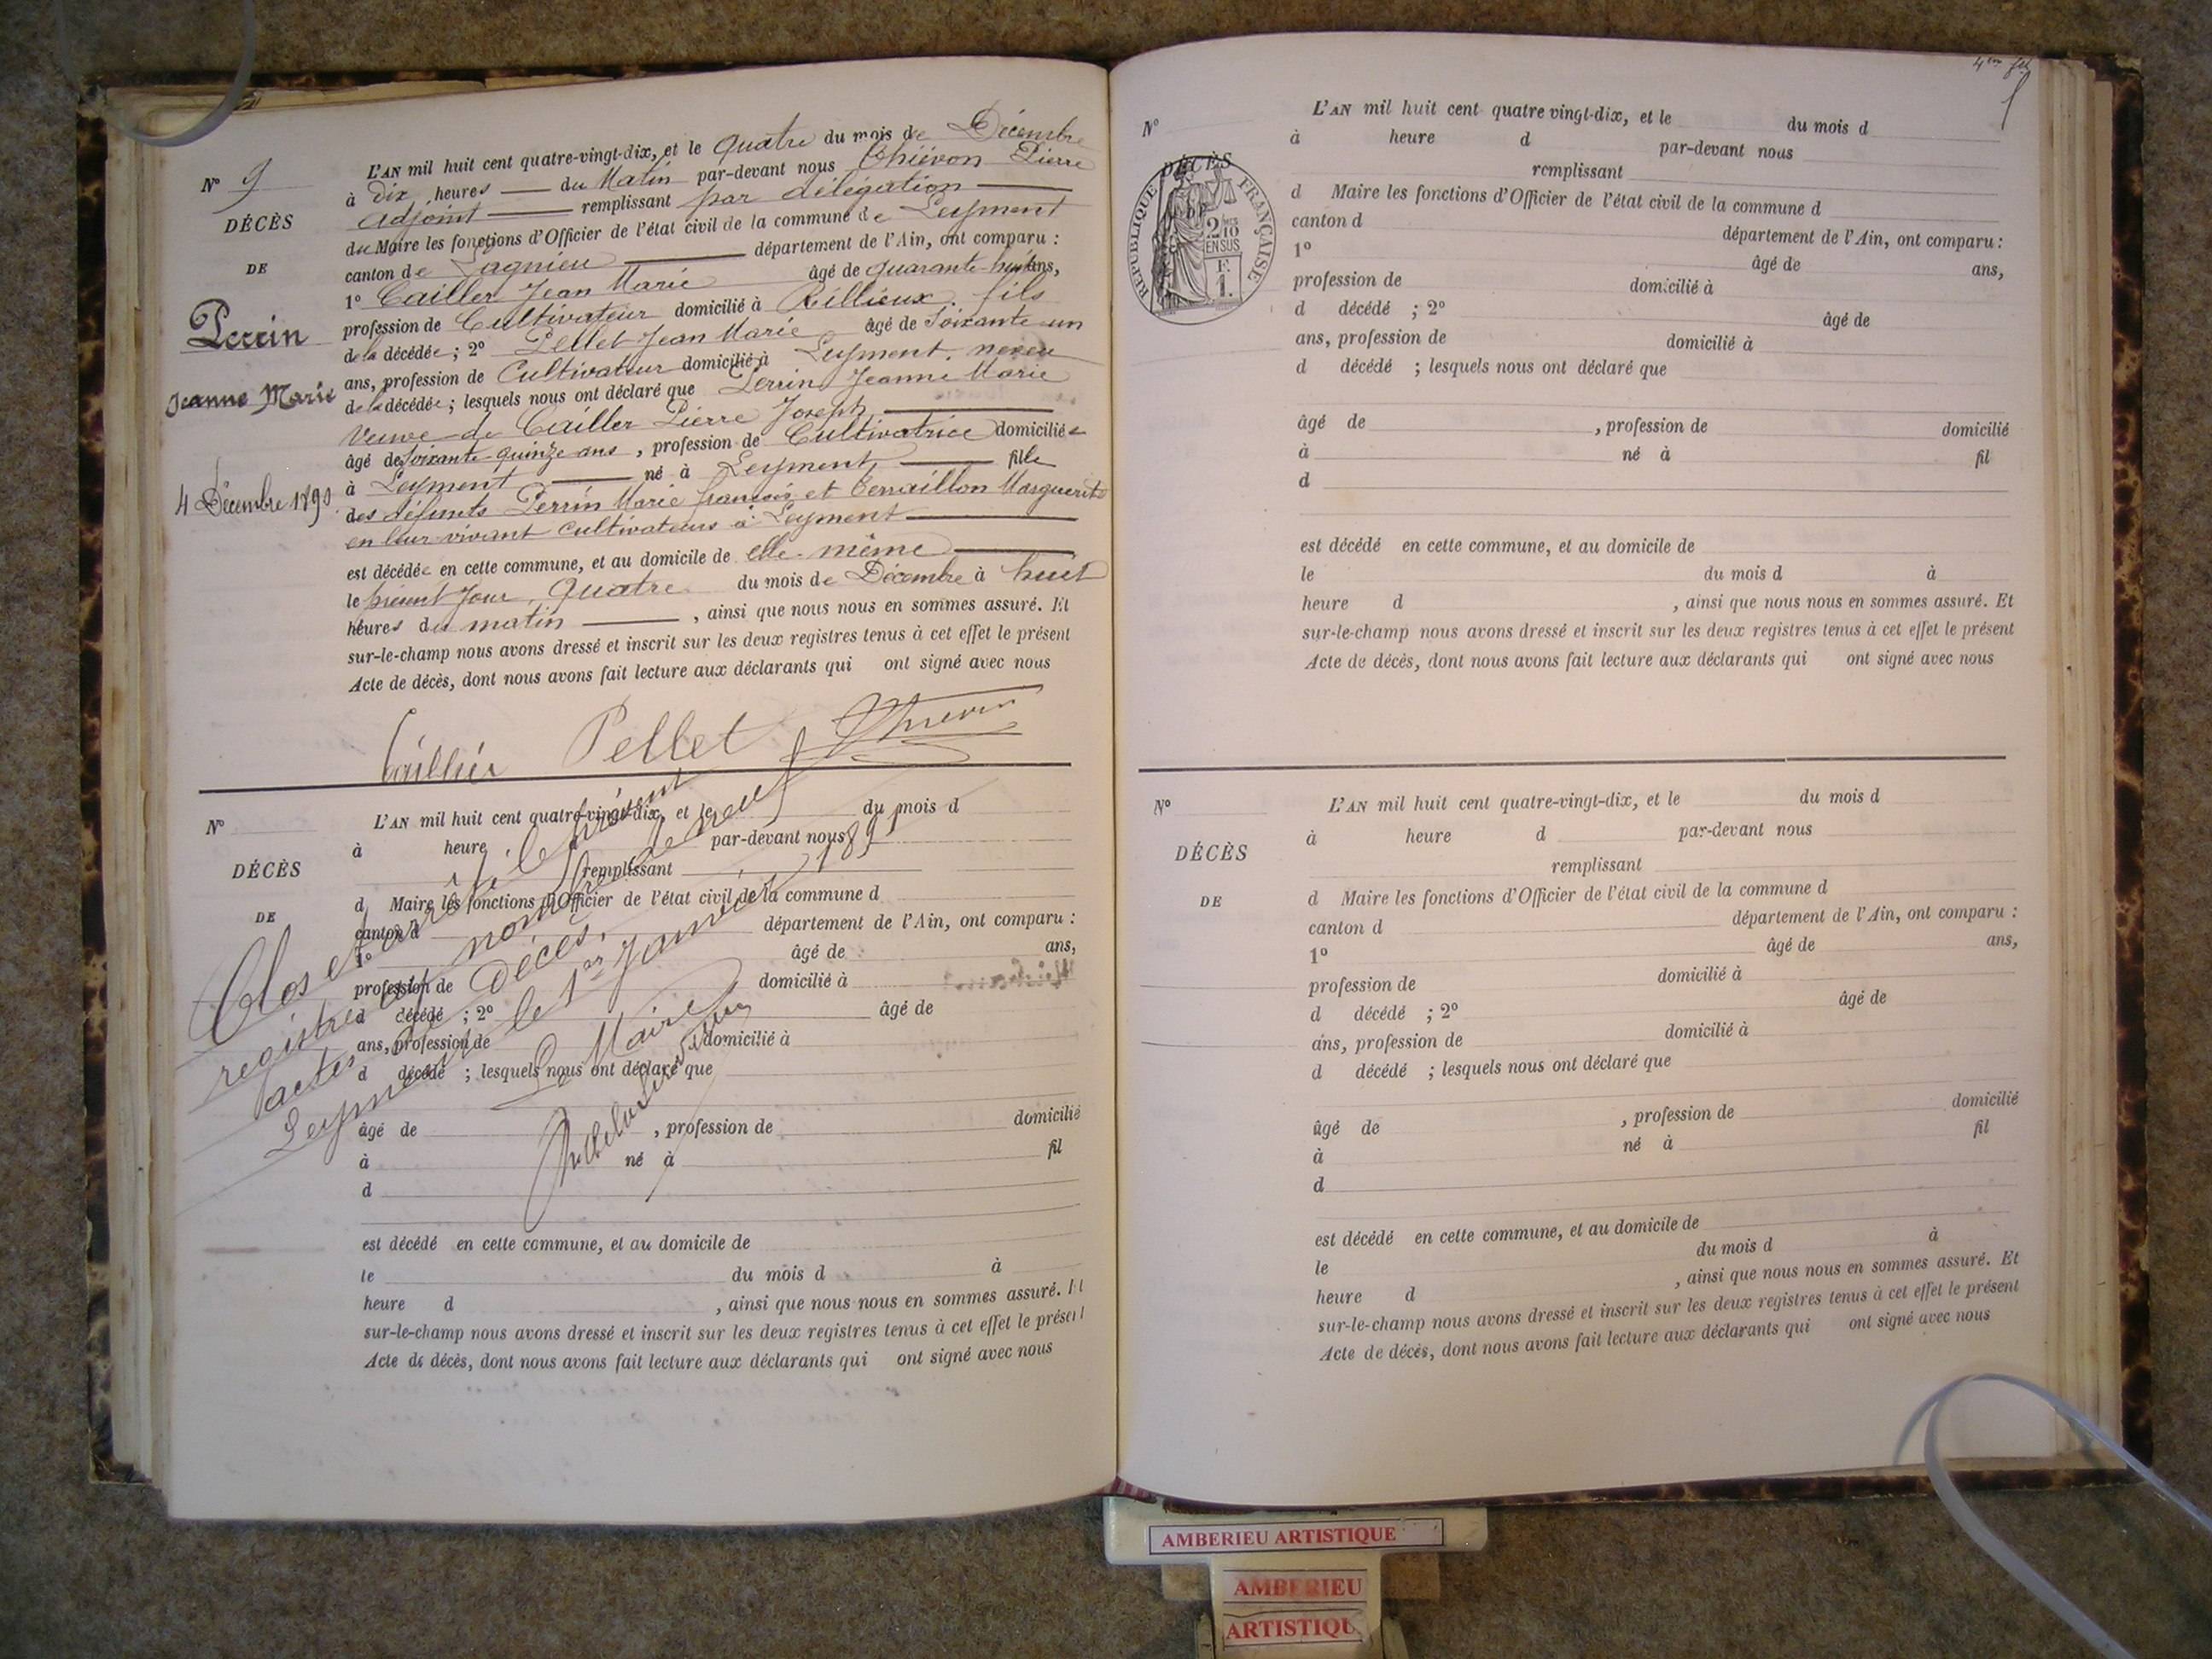 N° 9
DÉCÈS
DE
Perrin
Jeanne Marie
4 Décembre 1890
L'AN mil huit cent quatre-vingt-dix, et le quatre du mois de Décembre
à Dix heures du Matin par-devant nous Thiévon Pierre
adjoint remplissant par délégation
du Maire les fonctions d'Officier de l'état civil de la commune de Leyment
canton de Lagnieu département de l'Ain, ont comparu :
1° Cailler Jean Marie âgé de quarante-huit ans,
profession de Cultivateur domicilié à Rillieux. fils
de la décédée ; 2° Pellet Jean Marie âgé de Soixante-un
ans, profession de Cultivateur domicilié à Leyment, neveu
de la décédée ; lesquels nous ont déclaré que Perrin Jeanne Marie
Veuve de Cailler Pierre Joseph,
âgé de Soixante-quinze ans, profession de Cultivatrice domiciliée
à Leyment né à Leyment, fille
des défunts Perrin Marie françois et Terraillon Marguerite
en leur vivant cultivateurs à Leyment
est décédée en cette commune, et au domicile de elle-même
le présent jour, Quatre du mois de Décembre à huit
heures du matin, ainsi que nous nous en sommes assuré. Et
sur-le-champ nous avons dressé et inscrit sur les deux registres tenus à cet effet le présent
Acte de décès, dont nous avons fait lecture aux déclarants qui ont signé avec nous
Caillier Pellet Thievon
N°
DÉCÈS
DE
L'AN mil huit cent quatre-vingt-dix, et le du mois d
à heure par-devant nous
remplissant
d Maire les fonctions d'Officier de l'état civil de la commune d
canton d département de l'Ain, ont comparu :
1° âgé de ans,
profession de domicilié à
d décédé ; 2° âgé de
ans, profession de domicilié à
d décédé ; lesquels nous ont déclaré que
âgé de , profession de domicilié
à né à fil
d
est décédé en cette commune, et au domicile de
le du mois d à
heure d , ainsi que nous nous en sommes assuré. Et
sur-le-champ nous avons dressé et inscrit sur les deux registres tenus à cet effet le présent
Acte de décès, dont nous avons fait lecture aux déclarants qui ont signé avec nous
Clos et arrêté le présent
registre au nombre de neuf
actes de Décès.
Leyment le 1er Janvier 1891
Le Maire
4me flt
N°
RÉPUBLIQUE FRANÇAISE
2/10 EN SUS
F. 1.
DÉCÈS
DE
L'AN mil huit cent quatre vingt-dix, et le du mois d
à heure d par-devant nous
remplissant
d Maire les fonctions d'Officier de l'état civil de la commune d
canton d département de l'Ain, ont comparu :
1° âgé de ans,
profession de domicilié à
d décédé ; 2° âgé de
ans, profession de domicilié à
d décédé ; lesquels nous ont déclaré que
âgé de , profession de domicilié
à né à fil
d
est décédé en cette commune, et au domicile de
le du mois d à
heure d , ainsi que nous nous en sommes assuré. Et
sur-le-champ nous avons dressé et inscrit sur les deux registres tenus à cet effet le présent
Acte de décès, dont nous avons fait lecture aux déclarants qui ont signé avec nous
N°
DÉCÈS
DE
L'AN mil huit cent quatre-vingt-dix, et le du mois d
à heure d par-devant nous
remplissant
d Maire les fonctions d'Officier de l'état civil de la commune d
canton d département de l'Ain, ont comparu :
1° âgé de ans,
profession de domicilié à
d décédé ; 2° âgé de
ans, profession de domicilié à
d décédé ; lesquels nous ont déclaré que
âgé de , profession de domicilié
à né à fil
d
est décédé en cette commune, et au domicile de
le du mois d à
heure d , ainsi que nous nous en sommes assuré. Et
sur-le-champ nous avons dressé et inscrit sur les deux registres tenus à cet effet le présent
Acte de décès, dont nous avons fait lecture aux déclarants qui ont signé avec nous
AMBERIEU ARTISTIQUE
AMBERIEU
ARTISTIQU